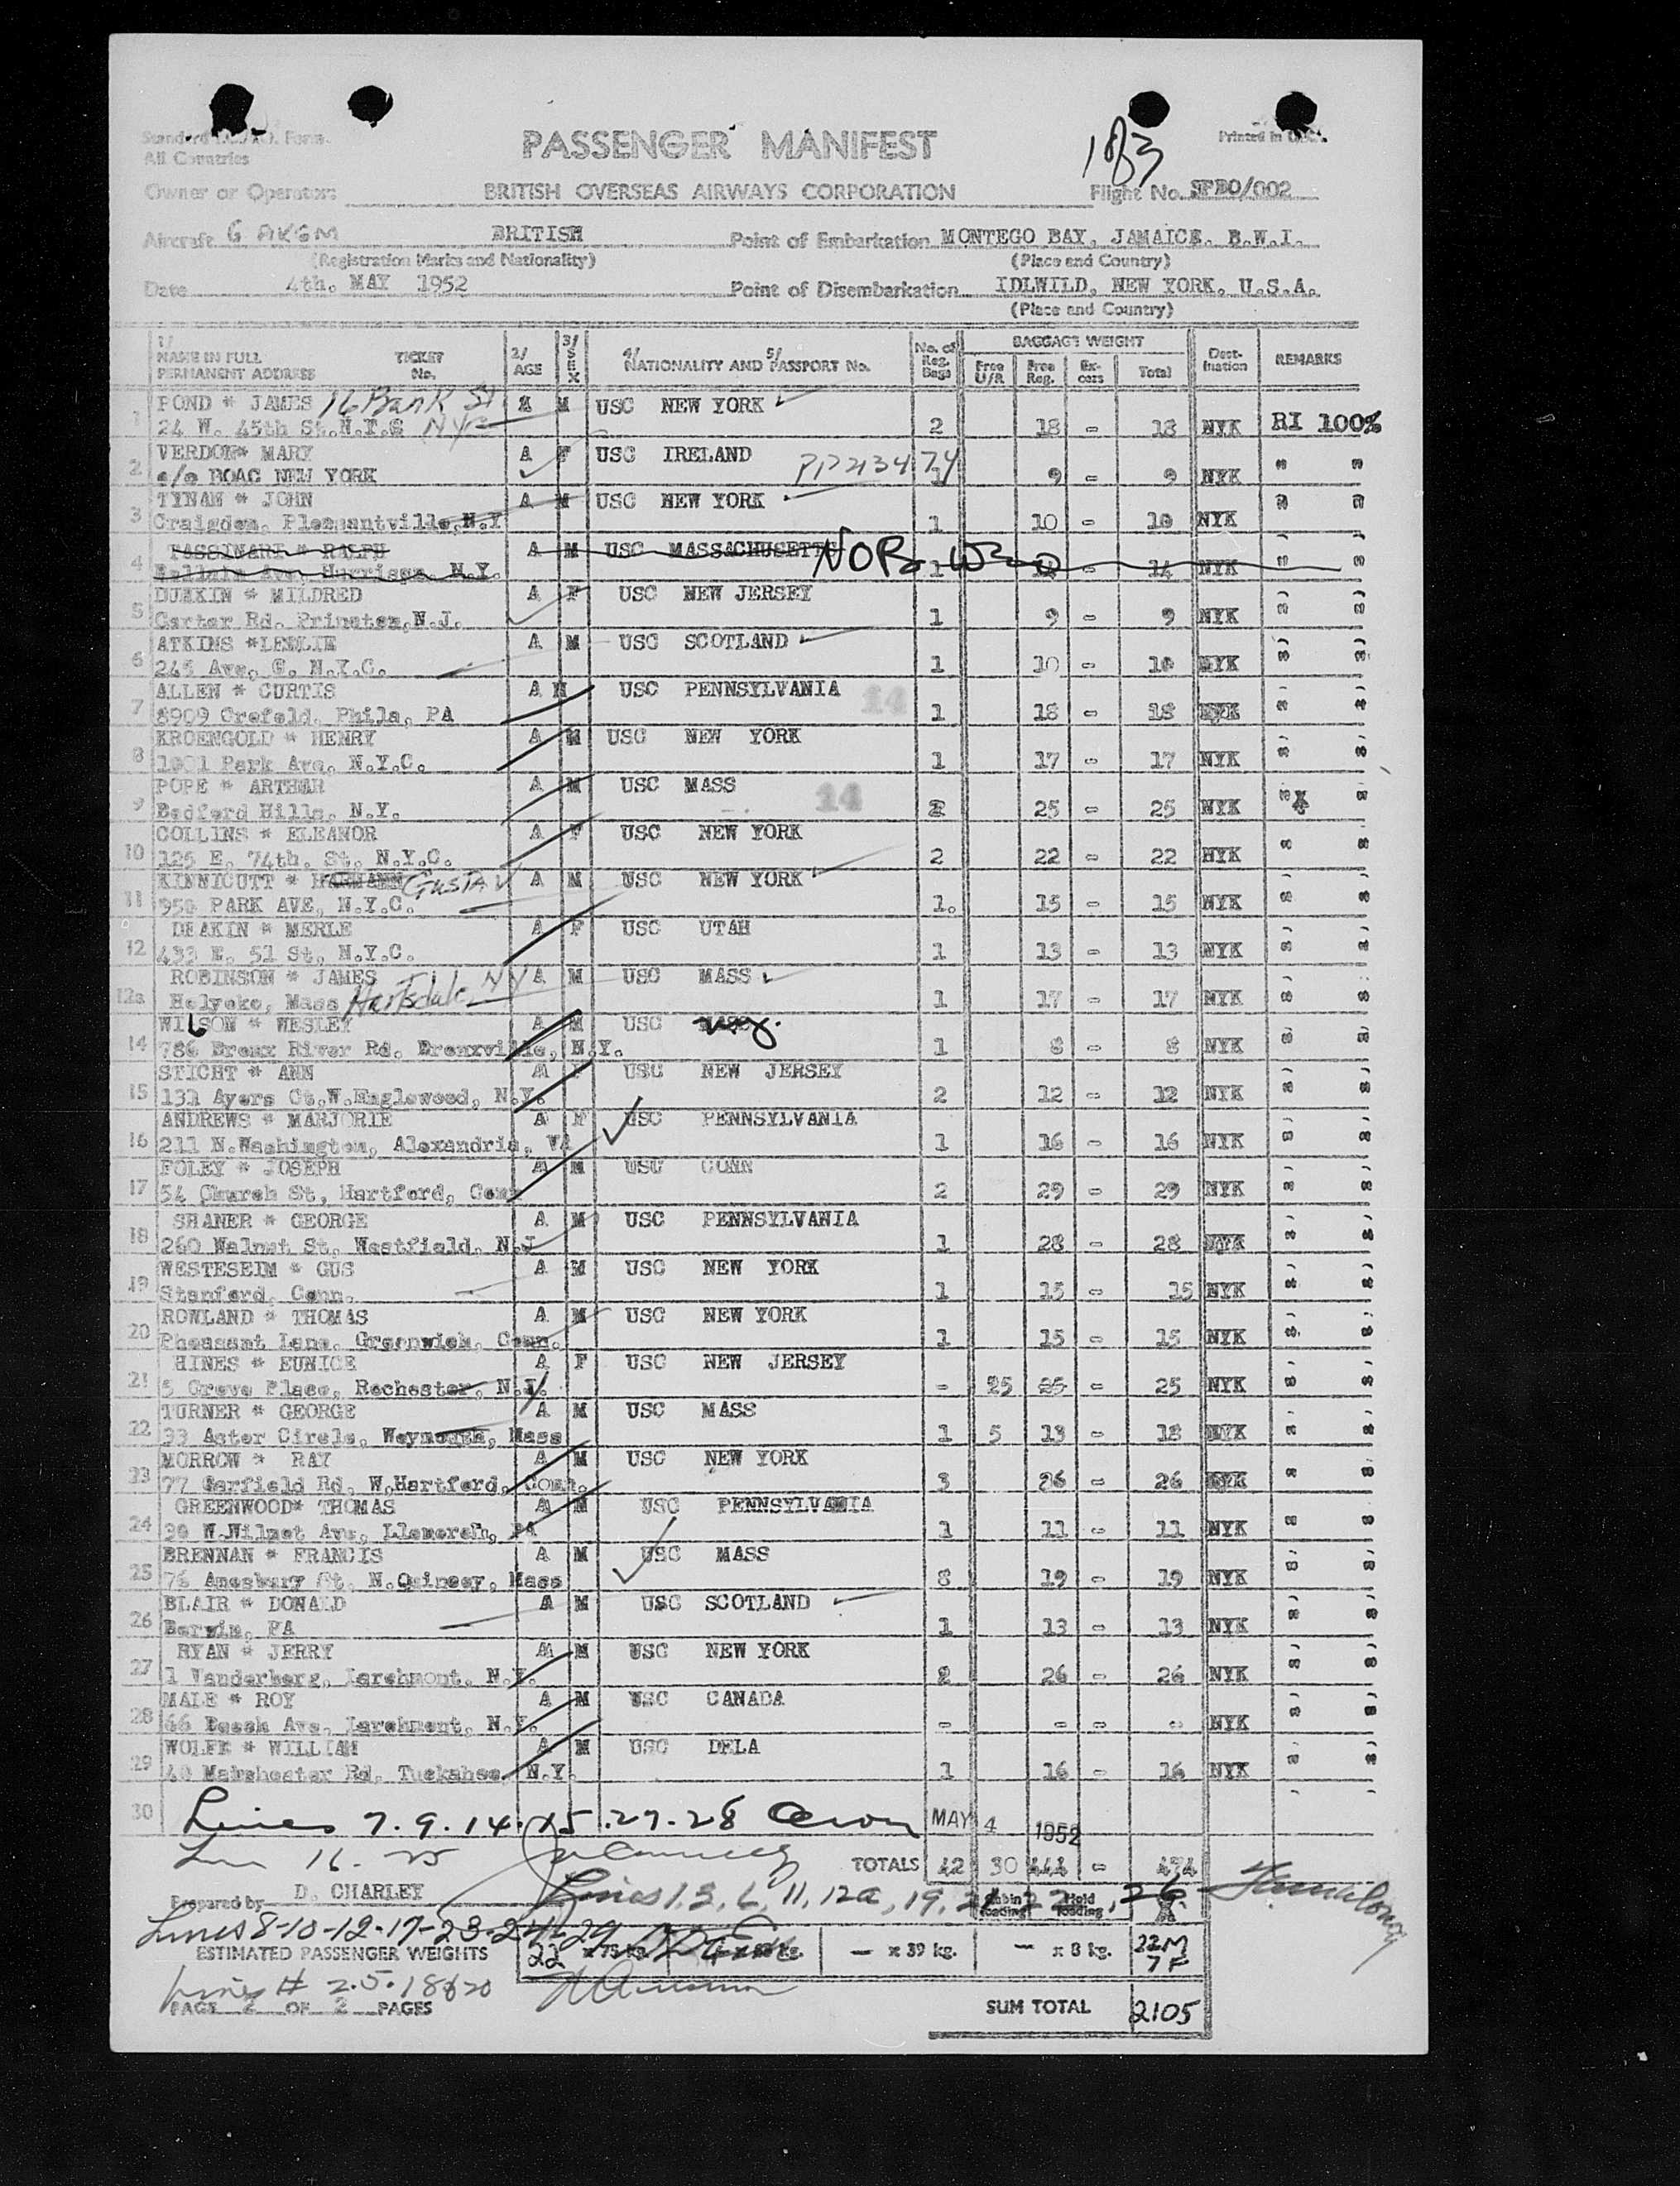 Standard I.C.A.O. Form.
All Countries
PASSENGER MANIFEST
183
Printed in
Owner or Operator: BRITISH OVERSEAS AIRWAYS CORPORATION Flight No. SPBO/002
Aircraft G AKGM BRITISH Point of Embarkation MONTEGO BAY, JAMAICE. B.W.I.
(Registration Marks and Nationality) (Place and Country)
Date 4th. MAY 1952 Point of Disembarkation IDLWILD, NEW YORK. U.S.A.
(Place and Country)
1/ NAME IN FULL PERMANENT ADDRESS TICKET No. 2/ AGE 3/ SEX 4/ NATIONALITY AND 5/ PASSPORT No. No. of Reg. Bags BAGGAGE WEIGHT Free U/R Free Reg. Ex-cess Total Dest-ination REMARKS
POND * JAMES 16 Bank St A M USC NEW YORK
1 24 W. 45th St.N.Y.C NYC 2 18 - 18 NYK RI 100%
VERDON* MARY A F USC IRELAND PP213474
2 c/o BOAC NEW YORK 9 - 9 NYK " "
TYNAN * JOHN A M USC NEW YORK
3 Craigdom, Pleasantville,N.Y 1 10 - 10 NYK " "
PASSINARI * RALPH A M USC MASSACHUSETTS NOB
4 Ave. Harrison N.Y. 1 14 - 14 NYK " "
DUNKIN * MILDRED A F USC NEW JERSEY
5 Carter Rd. Princton,N.J. 1 9 - 9 NYK " "
ATKINS *LESLIE A M USC SCOTLAND
6 245 Ave, C. N.Y.C. 1 10 - 10 NYK " "
ALLEN * CURTIS A M USC PENNSYLVANIA 14
7 8909 Crefeld, Phila, PA 1 18 - 18 NYK " "
KROENGOLD * HENRY A M USC NEW YORK
8 1001 Park Ave. N.Y.C. 1 17 - 17 NYK " "
POPE * ARTHUR A M USC MASS 14
9 Bedford Hills, N.Y. 2 25 - 25 NYK " "
COLLINS * ELEANOR A F USC NEW YORK
10 125 E. 74th. St. N.Y.C. 2 22 - 22 NYK " "
KINNICUTT * HARMANN GUSTAV A M USC NEW YORK
11 950 PARK AVE, N.Y.C. 1. 15 - 15 NYK " "
DEAKIN * MERLE A F USC UTAH
12 433 E. 51 St, N.Y.C. 1 13 - 13 NYK " "
ROBINSON * JAMES A M USC MASS
12a Holyoke, Mass Hartsdale NY 1 17 - 17 NYK " "
WILSON * WESLEY A M USC N.Y.
14 786 Bronx River Rd. Bronxville, N.Y. 1 8 - 8 NYK " "
STICHT * ANN A F USC NEW JERSEY
15 131 Ayers Ct,W.Englewood, N.Y. 2 12 - 12 NYK " "
ANDREWS * MARJORIE A F USC PENNSYLVANIA
16 211 N.Washington, Alexandria, VA 1 16 - 16 NYK " "
FOLEY * JOSEPH A M USC CONN
17 54 Church St, Hartford, Conn 2 29 - 29 NYK " "
SHANER * GEORGE A M USC PENNSYLVANIA
18 260 Walnut St. Westfield, N.J 1 28 - 28 NYK " "
WESTESEIM * GUS A M USC NEW YORK
19 Stanford, Conn. 1 15 - 15 NYK " "
ROWLAND * THOMAS A M USC NEW YORK
20 Pheasant Lane, Greenwich, Conn. 1 15 - 15 NYK " "
HINES * EUNICE A F USC NEW JERSEY
21 5 Grove Place, Rochester, N.Y. - 25 25 - 25 NYK " "
TURNER * GEORGE A M USC MASS
22 33 Aster Circle, Weymouth, Mass 1 5 13 - 18 NYK " "
MORROW * RAY A M USC NEW YORK
23 77 Garfield Rd. W.Hartford, Conn. 3 26 - 26 NYK " "
GREENWOOD* THOMAS A M USC PENNSYLVANIA
24 30 W.Wilmot Ave, Llanerch, PA 1 11 - 11 NYK " "
BRENNAN * FRANCIS A M USC MASS
25 76 Amesbury St. N.Quincey, Mass 8 19 - 19 NYK " "
BLAIR * DONALD A M USC SCOTLAND
26 Berwin, PA 1 13 - 13 NYK " "
RYAN * JERRY A M USC NEW YORK
27 1 Vanderberg, Larchmont, N.Y. 2 26 - 26 NYK " "
MALE * ROY A M USC CANADA
28 66 Beech Ave, Larchmont, N.Y. - - - - NYK " "
WOLFE * WILLIAM A M USC DELA
29 40 Mainchester Rd, Tuckahoe, N.Y. 1 16 - 16 NYK " "
30 Lines 7.9.14.15.27.28 MAY 4 1952
16 - 25 TOTALS 42 30 444 - 474
Prepared by D. CHARLEY Lines 1,3,6,11,12a,19,21,22,26 Cabin loading Hold loading
Lines 8-10-12-17-23-24-29
ESTIMATED PASSENGER WEIGHTS 22 x 75 kg. kg. — x 39 kg. — x 8 kg. 22M 7F
Lines # 2.5.18 & 20
PAGE 2 OF 2 PAGES SUM TOTAL 2105